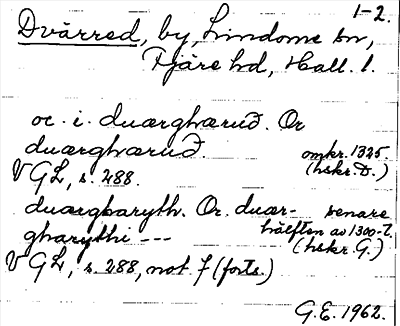 1-2.
Dvärred, by, Lindome sn,
Fjäre hd, Hall. l.
oc. i. duærghæruð. Or
duærghæruð. omkr. 1325.
(hskr. D.)
VGL, s. 288.
duærgharyth. Or. duær- senare
gharythi --- hälften av 1300-t.
(hskr. G.)
VGL, s. 288, not. 7 (forts.)
G.E. 1962.